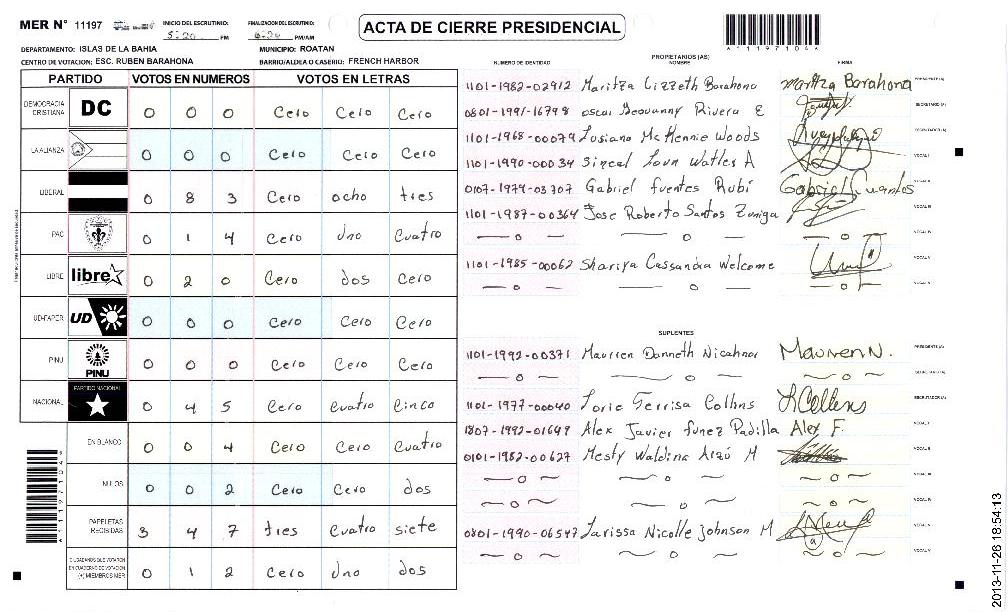 MER N° 11197
INICIO DEL ESCRUTINIO: 5:20 PM
FINALIZACION DEL ESCRUTINIO: PM/AM
ACTA DE CIERRE PRESIDENCIAL
A11197104
DEPARTAMENTO: ISLAS DE LA BAHIA MUNICIPIO: ROATAN
CENTRO DE VOTACION: ESC. RUBEN BARAHONA BARRIO/ALDEA O CASERIO: FRENCH HARBOR
PARTIDO VOTOS EN NUMEROS VOTOS EN LETRAS
DEMOCRACIA CRISTIANA DC 0 0 0 Cero Cero Cero
LA ALIANZA 0 0 0 Cero Cero Cero
LIBERAL 0 8 3 Cero ocho tres
PAC 0 1 4 Cero uno Cuatro
LIBRE libre 0 2 0 Cero dos Cero
UD-FAPER UD 0 0 0 Cero Cero Cero
PINU PINU 0 0 0 Cero Cero Cero
NACIONAL PARTIDO NACIONAL 0 4 5 Cero cuatro Cinco
EN BLANCO 0 0 4 Cero Cero Cuatro
NULOS 0 0 2 Cero Cero dos
PAPELETAS RECIBIDAS 3 4 7 tres Cuatro siete
CIUDADANOS QUE VOTARON EN CUADERNO DE VOTACION (+) MIEMBROS MER 0 1 2 Cero uno dos
PROPIETARIOS (AS)
NUMERO DE IDENTIDAD NOMBRE FIRMA
1101-1982-02912 Maritza Lizzeth Barahona Maritza Barahona PRESIDENTE (A)
0801-1991-16798 oscar Geovanny Rivera E SECRETARIO (A)
1101-1968-00079 Lusiano McKennie Woods ESCRUTADOR (A)
1101-1990-00034 Watler A VOCAL I
0107-1974-03707 Gabriel fuentes Rubí Gabriel Fuentes VOCAL II
1101-1987-00364 Jose Roberto Santos Zuniga VOCAL III
— 0 — — 0 — — 0 — VOCAL IV
1101-1985-00062 Shariya Cassandra Welcome VOCAL V
— 0 — — 0 — — 0 —
SUPLENTES
1101-1992-00371 Maurren Danneth Nicahnor Mauren N. PRESIDENTE (A)
— 0 — — 0 — — 0 — SECRETARIO (A)
1101-1977-00040 Lorie Terrisa Collins L Collins ESCRUTADOR (A)
1807-1992-01649 Alex Javier funez Padilla Alex F. VOCAL I
0101-1982-00627 Mesty Waldina Arzú M VOCAL II
— 0 — — 0 — — 0 — VOCAL III
— 0 — — 0 — — 0 — VOCAL IV
0801-1990-06547 Larissa Nicolle Johnson M VOCAL V
— 0 — — 0 — — 0 —
2013-11-26 18:54:13